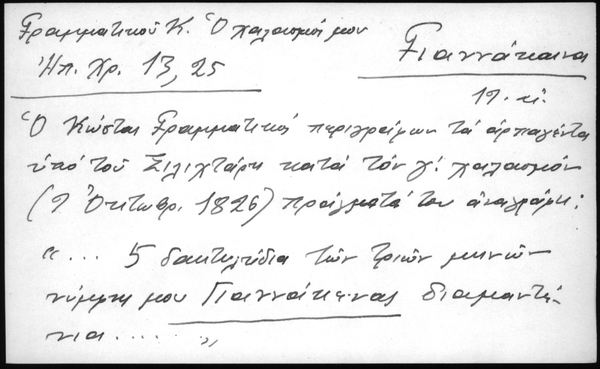 Γραμματικοῦ Κ. Ὁ χαλασμός μου
Ἠπ. Χρ. 13, 25
Γιαννάκαινα
19. αἰ.
Ὁ Κώστας Γραμματικός περιγράφων τά ἁρπαγέντα
ὑπό τοῦ Σιλιχτάρη κατά τόν γ΄. χαλασμόν
(9 Ὀκτωβρ. 1826) πράγματά του ἀναγράφει:
«... 5 δακτυλίδια τῶν τριῶν μηνῶν
νύμφης μου Γιαννάκενας διαμαντέ-
νια..... »